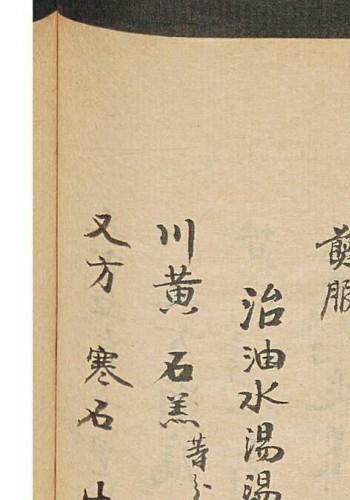 煎服
治油水湯湯
川黄 石羔 等分
又方 寒石